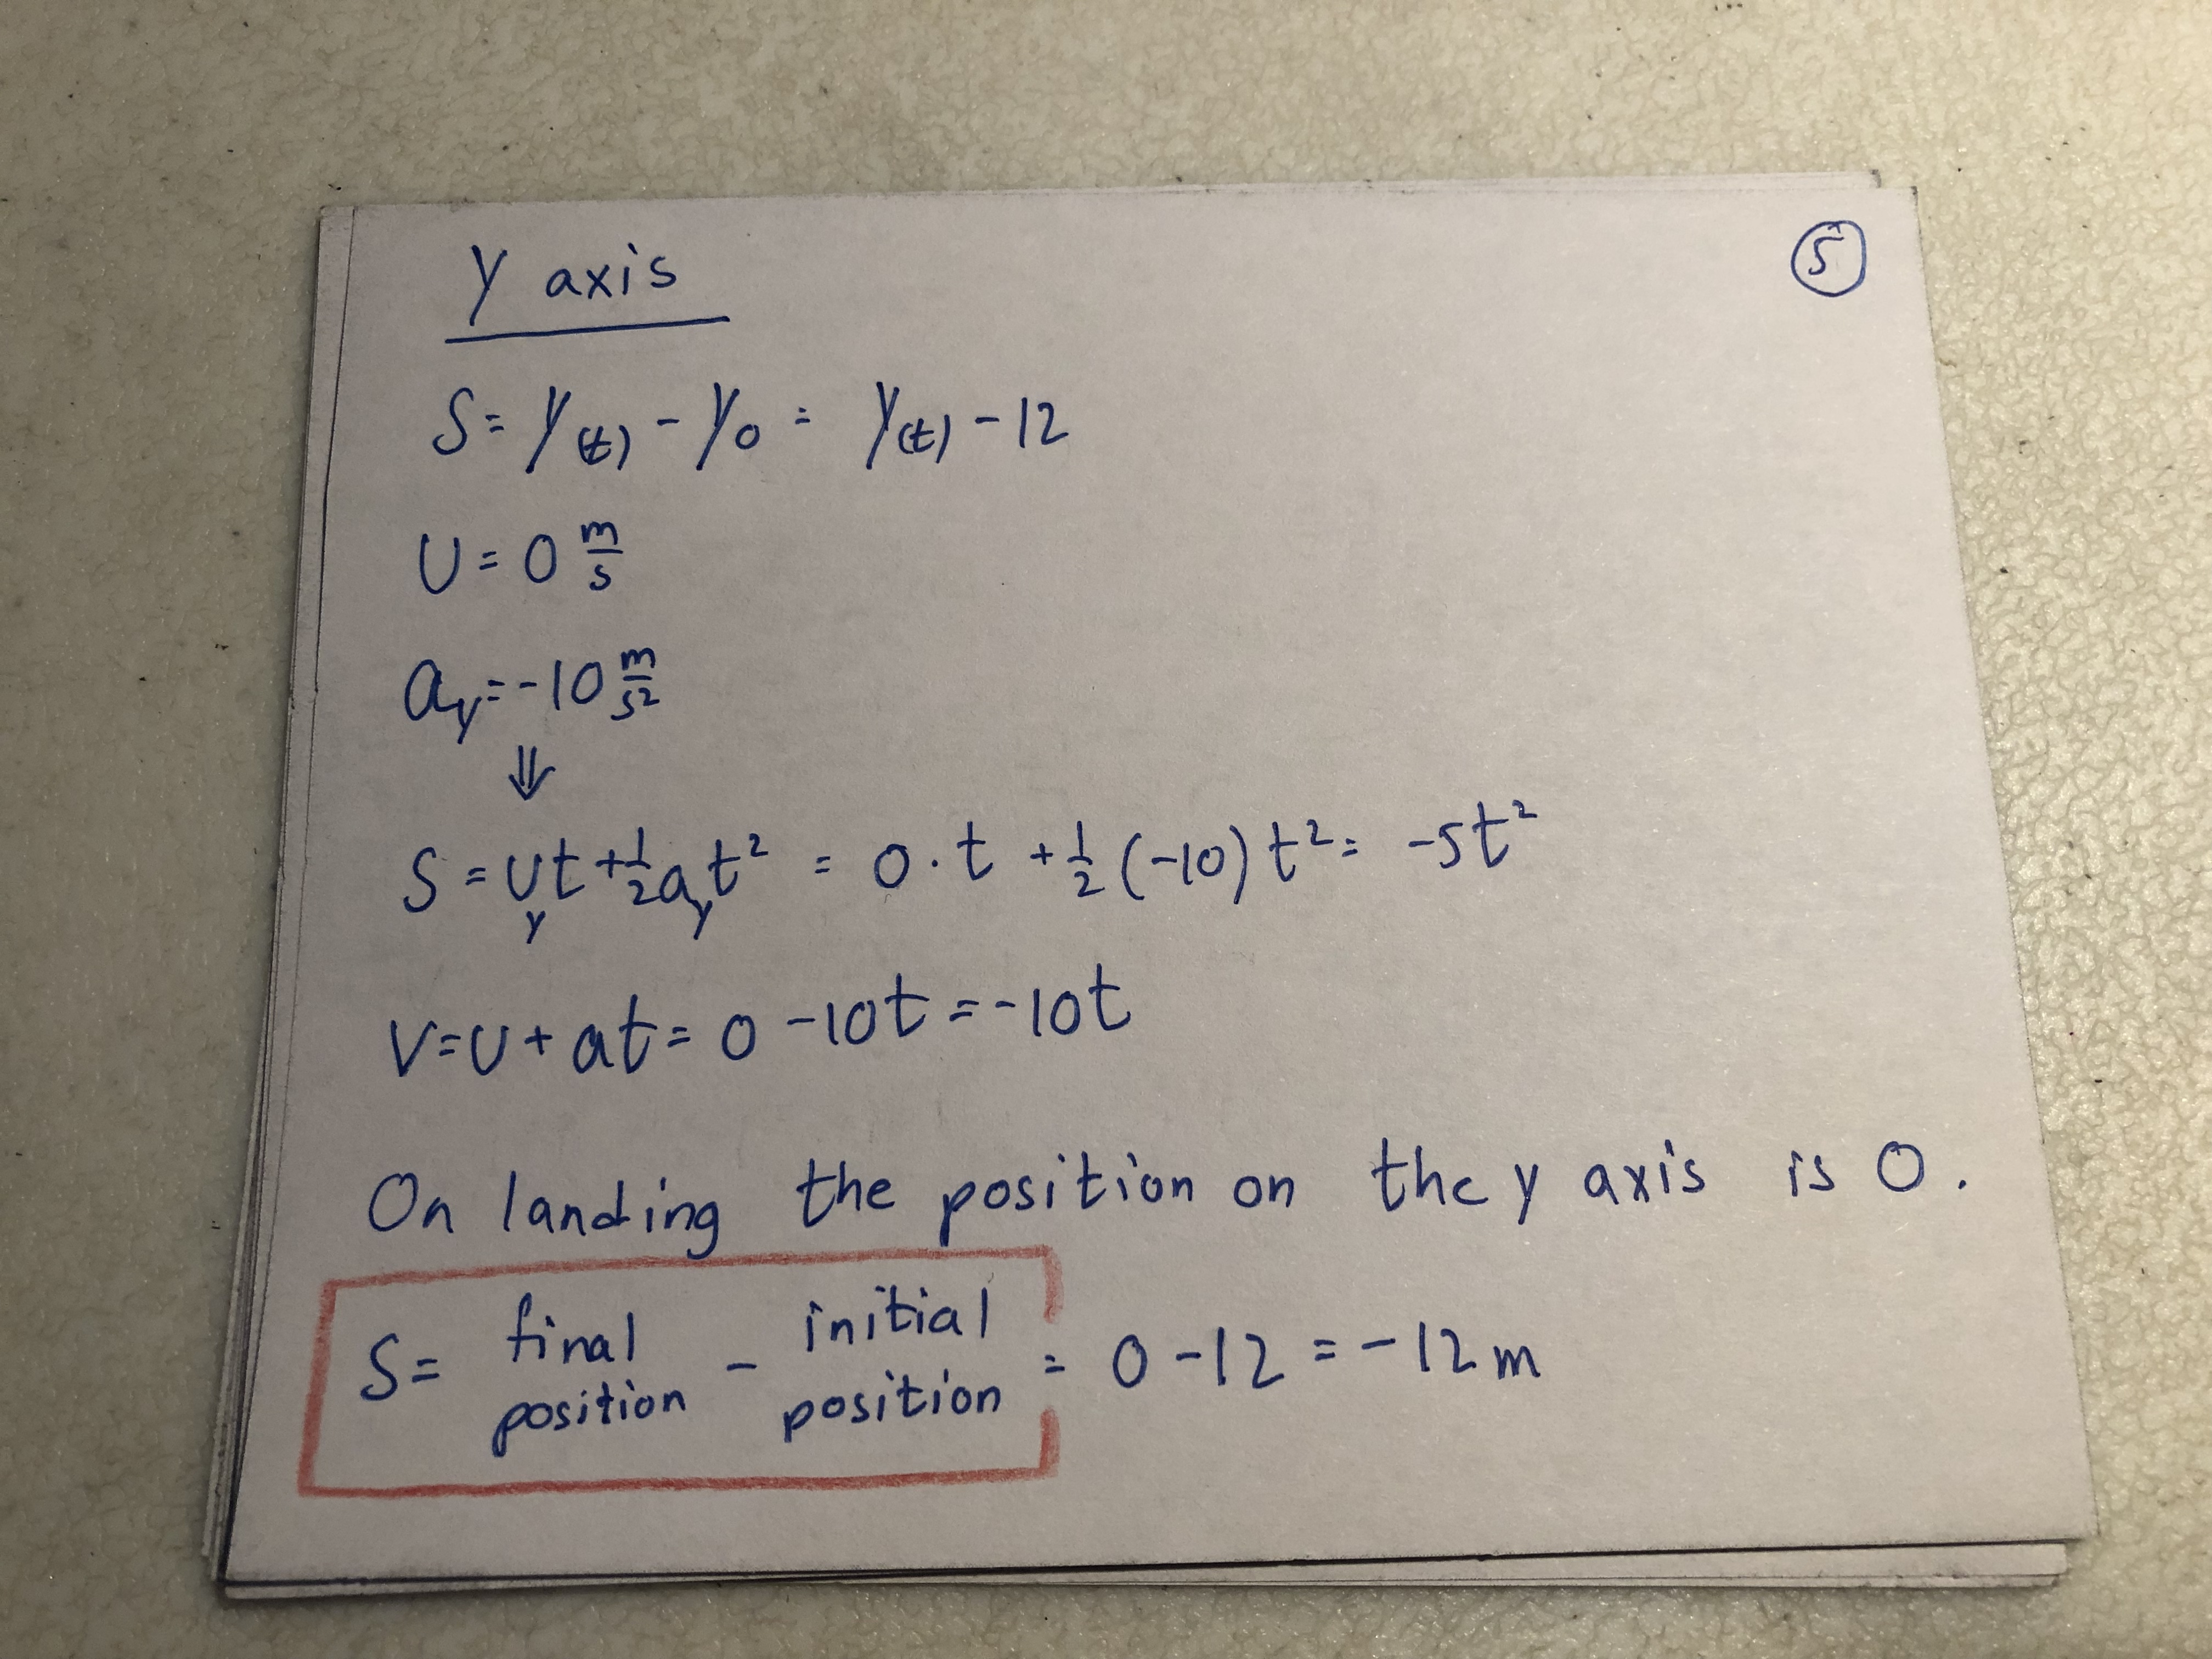 Y axis
5
S = y(t) - y0 = y(t) - 12
U = 0 m/s
ay = -10 m/s²
⇓
S = Uyt + 1/2 ayt² = 0 · t + 1/2 (-10) t² = -5t²
V = U + at = 0 - 10t = -10t
On landing the position on the y axis is 0.
S = final position - initial position = 0 - 12 = -12 m